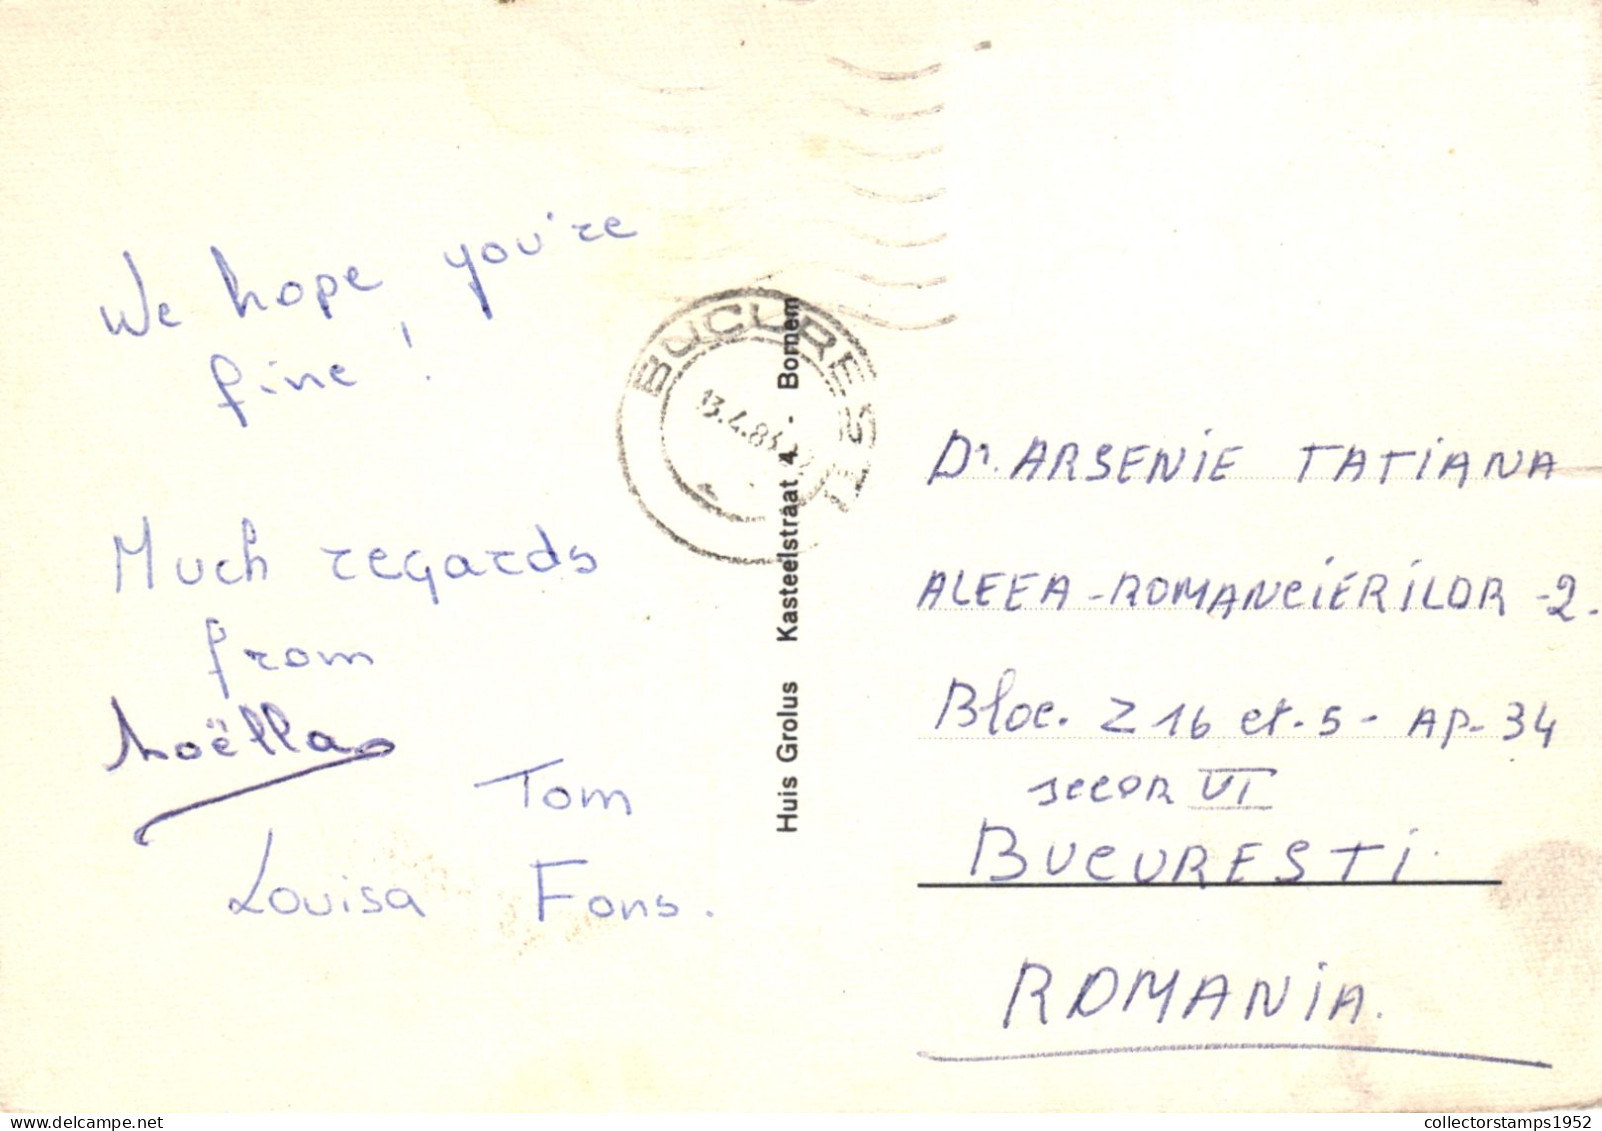 We hope, you're
fine!
Much regards
from
Noëlla
Tom
Louisa Fons.
BUCURESTI
13.4.84
Huis Grolus Kasteelstraat 4. Bornem
Dr. ARSENIE TATIANA
ALEEA-ROMANCIERILOR -2.
Bloc. Z 16 et. 5 - AP. 34
secor VI
BUCURESTI.
ROMANIA.
collectorstamps1952